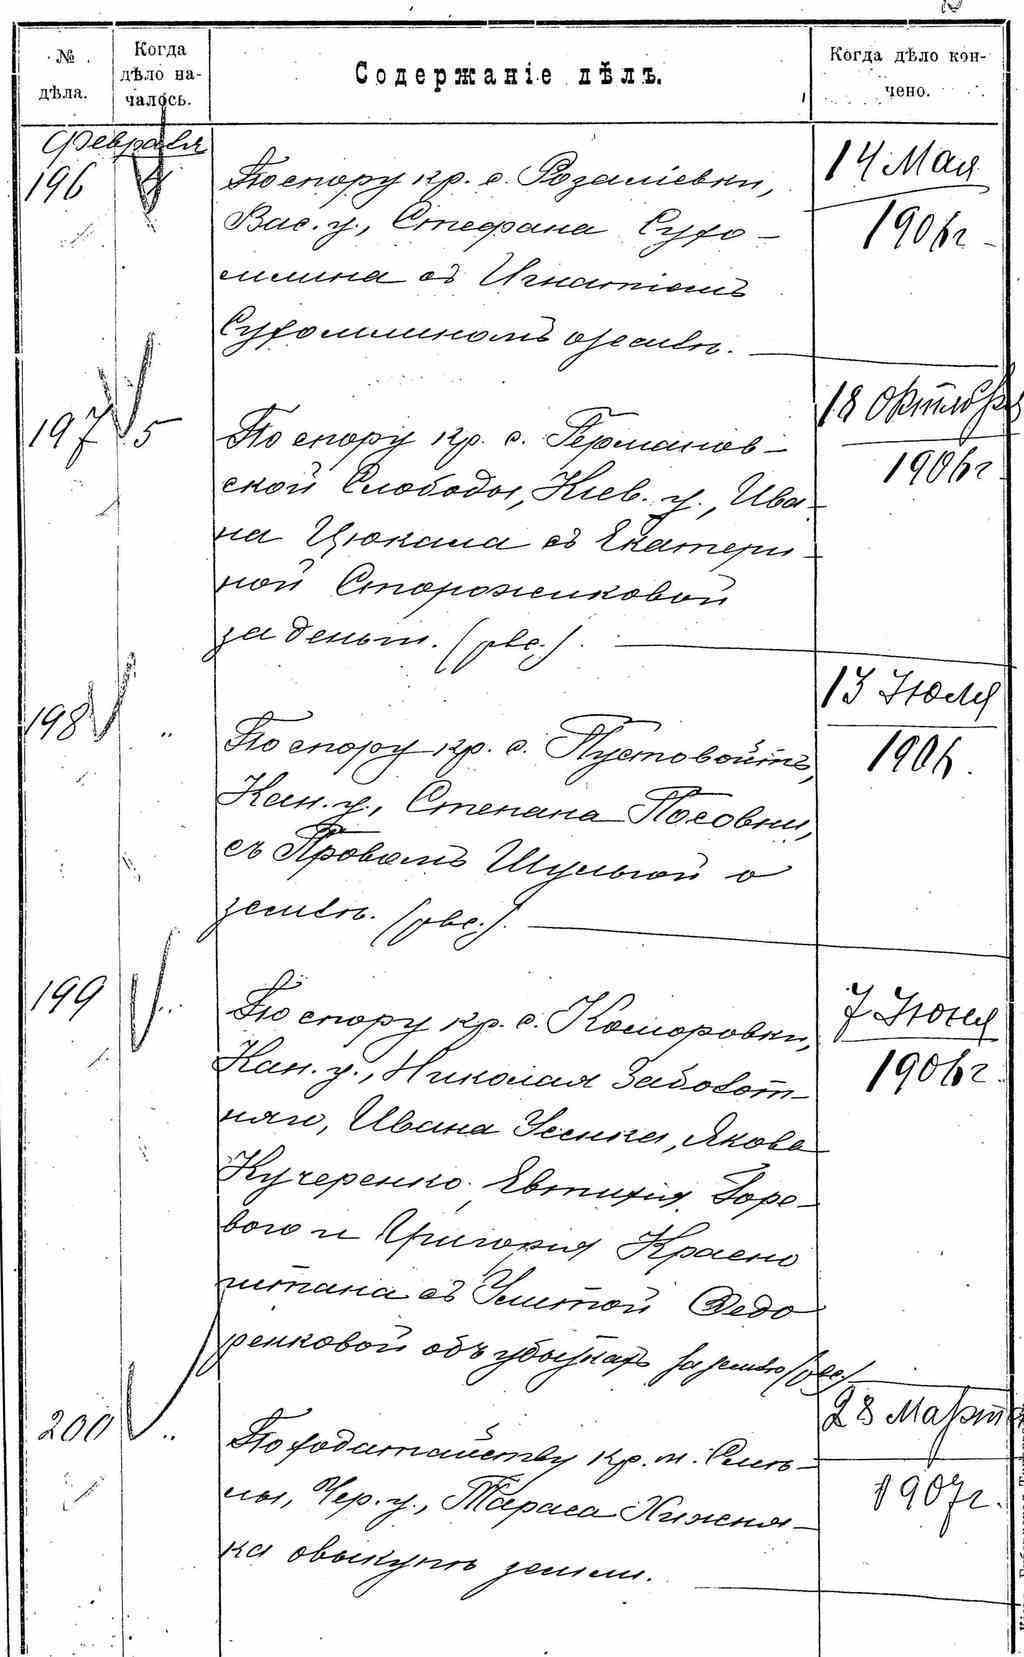 № дѣла.
Когда дѣло на-
чалось.
Содержаніе дѣлъ.
Когда дѣло кон-
чено.
Февраля
196 4
По спору кр. с. Розаліевки,
Вас. у., Стефана Сухо-
млина съ Игнатіемъ
Сухомлиномъ о землѣ.
14 Мая
1906 г.
197 5
По спору кр. с. Германов-
ской Слободы, Кіев. у., Ива-
на Цюкала съ Екатери-
ной Сторожиковой
за деньги.
18 Октября
1906 г.
198 "
По спору кр. с. Пустовойтъ,
Кан. у., Степана Посовни,
съ Провомъ Шульгой о
землѣ.
13 Июля
1906.
199 "
По спору кр. с. Коморовки,
Кан. у., Николая Заболот-
няго, Ивана Усенка, Якова
Кучеренко, Евтихія Боро-
вого и Григорія Красно
штана съ Улитой Федо
ренковой объ убыткахъ за землю
7 Июня
1906 г.
200 "
По ходатайству кр. м. Смѣ-
лы, Чер. у., Тараса Хижня-
ка о выкупѣ земли.
28 Марта
1907 г.